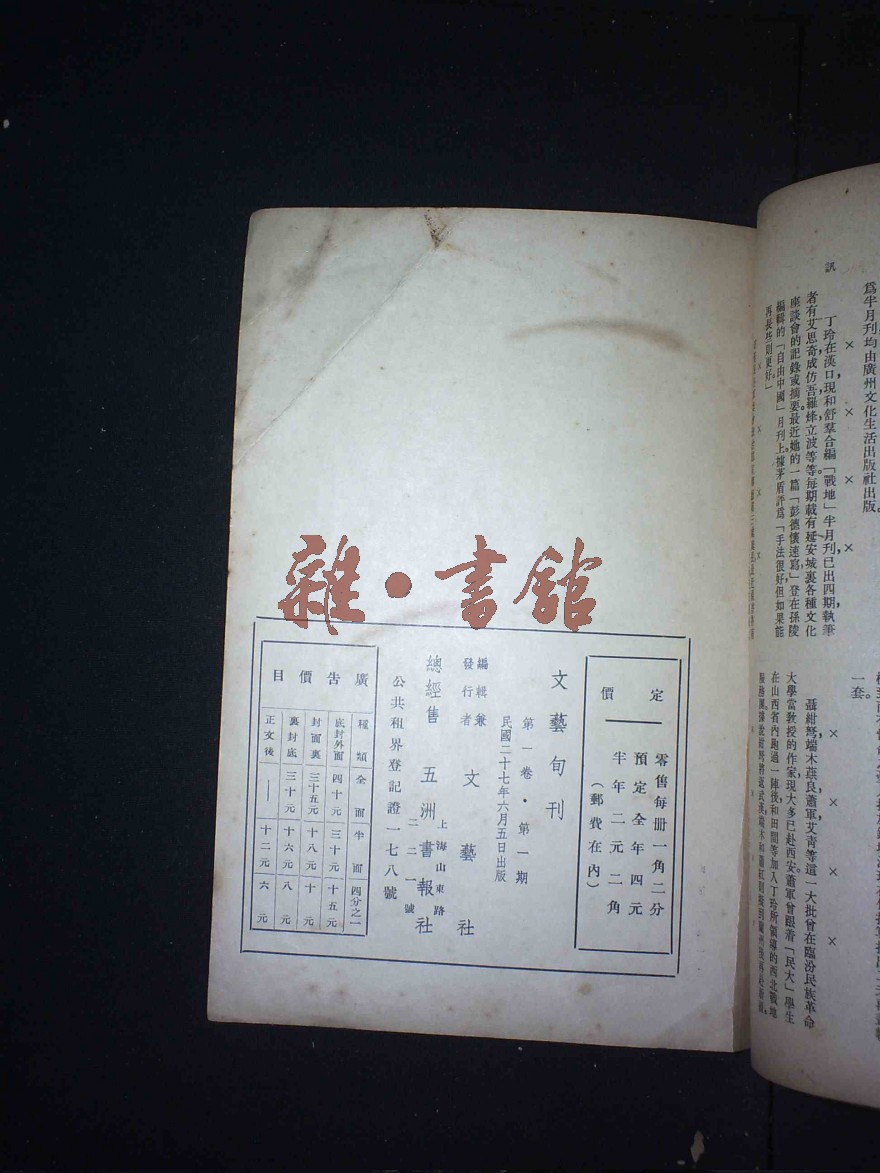 爲半月刊均由廣州文化生活出版社出版。
訊
× × × ×
丁玲在漢口，現和舒羣合編「戰地」半月刊已出四期，執筆
者有艾思奇，成仿吾，羅烽，立波等等。每期載有延安城裏各種文化
座談會的記錄或摘要。最近她的一篇「彭德懷速寫」登在孫陵
編輯的「自由中國」月刊上，據茅盾評爲「手法很好但如果能
再長些則更好。」
一套。
× × × ×
聶紺弩，端木蕻良，蕭軍，艾青等這一大批曾在臨汾民族革命
大學當敎授的作家，現大多已赴西安。蕭軍曾跟着「民大」學生
在山西省內跑過一陣，後和田間等加入丁玲所領導的西北戰地
雜·書館
定價
零售每冊一角二分
預定全年四元
半年二元二角
（郵費在內）
文藝旬刊
第一卷·第一期
民國二十七年六月五日出版
編輯兼發行者 文藝社
上海山東路二二一號
總經售 五洲書報社
公共租界登記證一七八號
廣告價目
種類 全面 半面 四分之一
底封外面 四十元 三十元 十五元
封面裏 三十五元 十八元 十元
裏封底 三十元 十六元 八元
正文後 — 十二元 六元